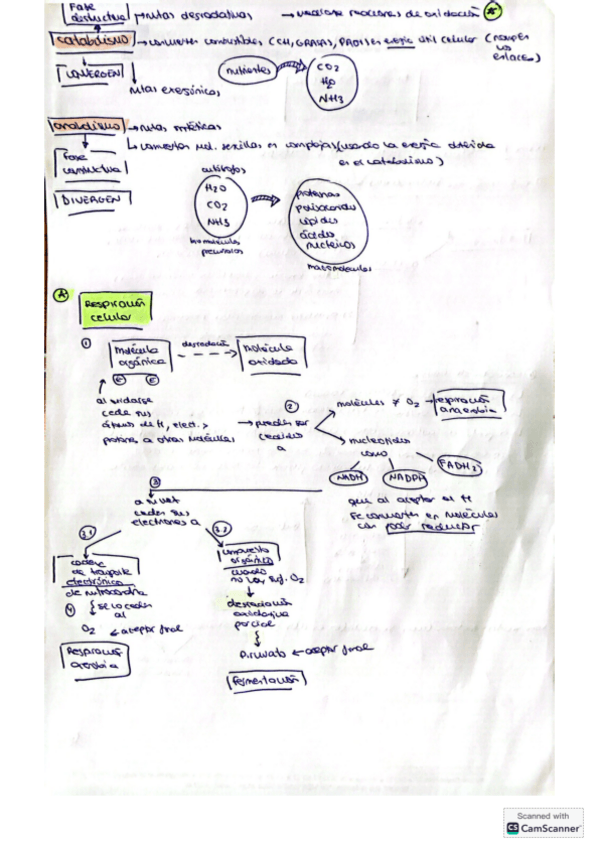 Fase destructiva → rutas degradativas → reacciones de oxidación
catabolismo → convierten combustibles (CH, GRASAS, PROT) en energía útil celular (rompen
enlaces)
CONVERGEN
rutas exergónicas
nutrientes
CO2
H2O
NH3
anabolismo → rutas sintéticas
convierten mol. sencillas en complejas (usando la energía obtenida
en el catabolismo)
Fase
constructiva
DIVERGEN
autótrofos
H2O
CO2
NH3
biomoléculas
precursoras
proteínas
polisacáridos
lípidos
ácidos
nucleicos
macromoléculas
RESPIRACIÓN
celular
1
molécula
orgánica
degradación
molécula
oxidada
al oxidarse
cede sus
átomos de H, elect. y
protones a otras moléculas
→ pueden ser
cedidos
a
2
moléculas ≠ O2 → respiración
anaerobia
nucleótidos
como
NADH
NADPH
FADH2
que al aceptar el H
se convierten en moléculas
con poder reductor
3
a su vez
ceden sus
electrones a
3.1
3.2
cadena
de transporte
electrónico
de mitocondria
4
se lo ceden
al
O2 ← aceptor final
Respiración
aerobia
compuesto
orgánico
cuando
no hay suf. O2
degradación
oxidativa
parcial
Piruvato ← aceptor final
fermentación
Scanned with
CS CamScanner